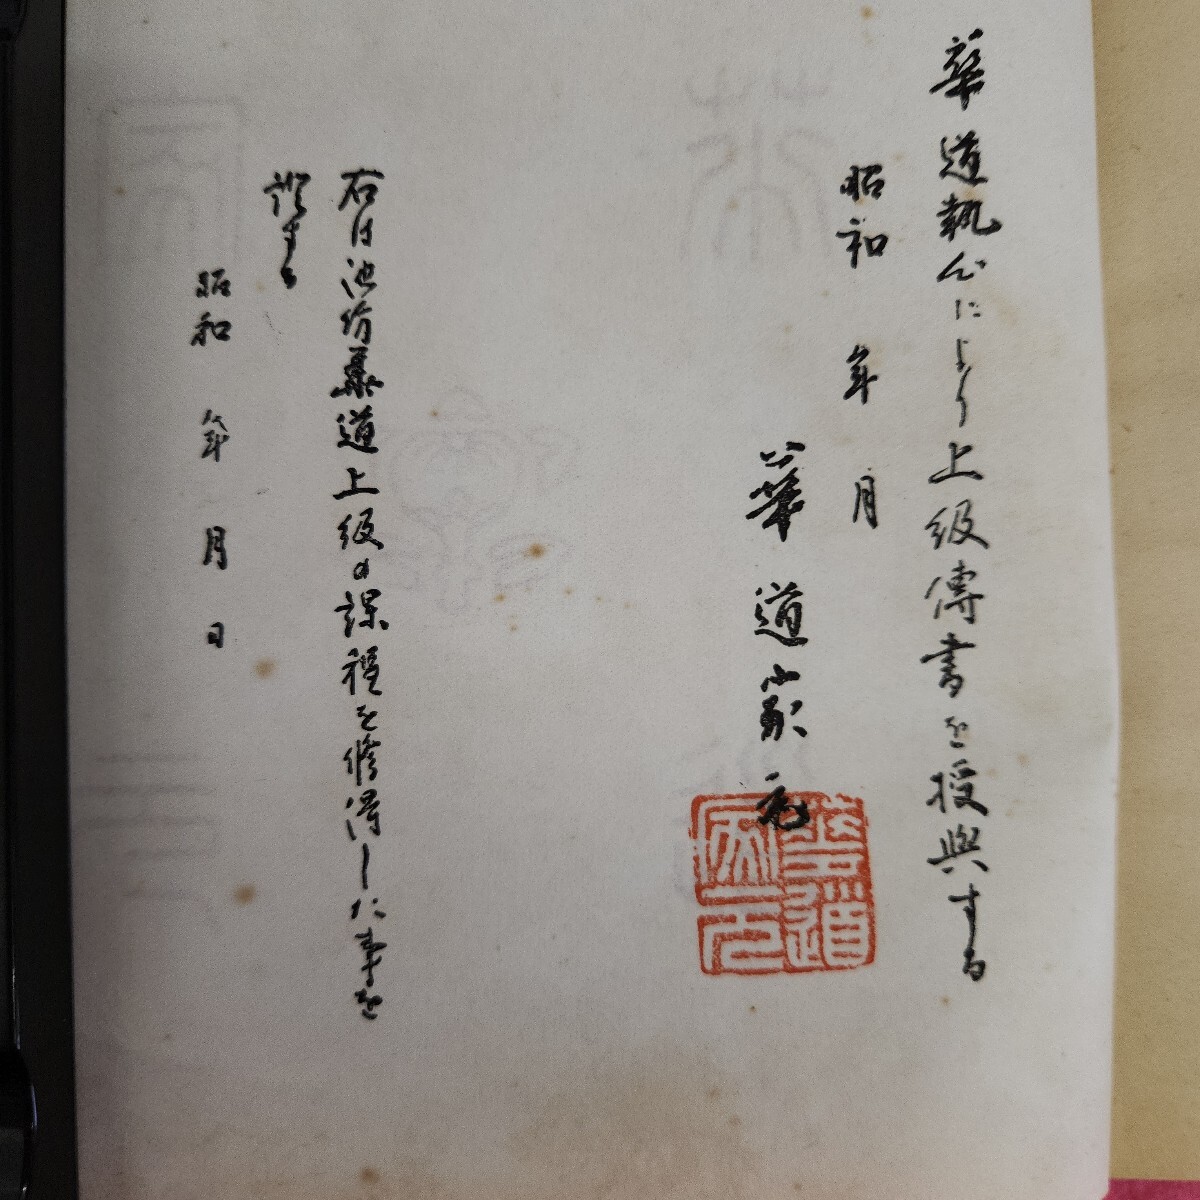 華道執心により上級傳書を授與する
昭和 年 月
華道家元
華道家元
右は池坊華道上級の課程を修得した事を
證する
昭和 年 月 日